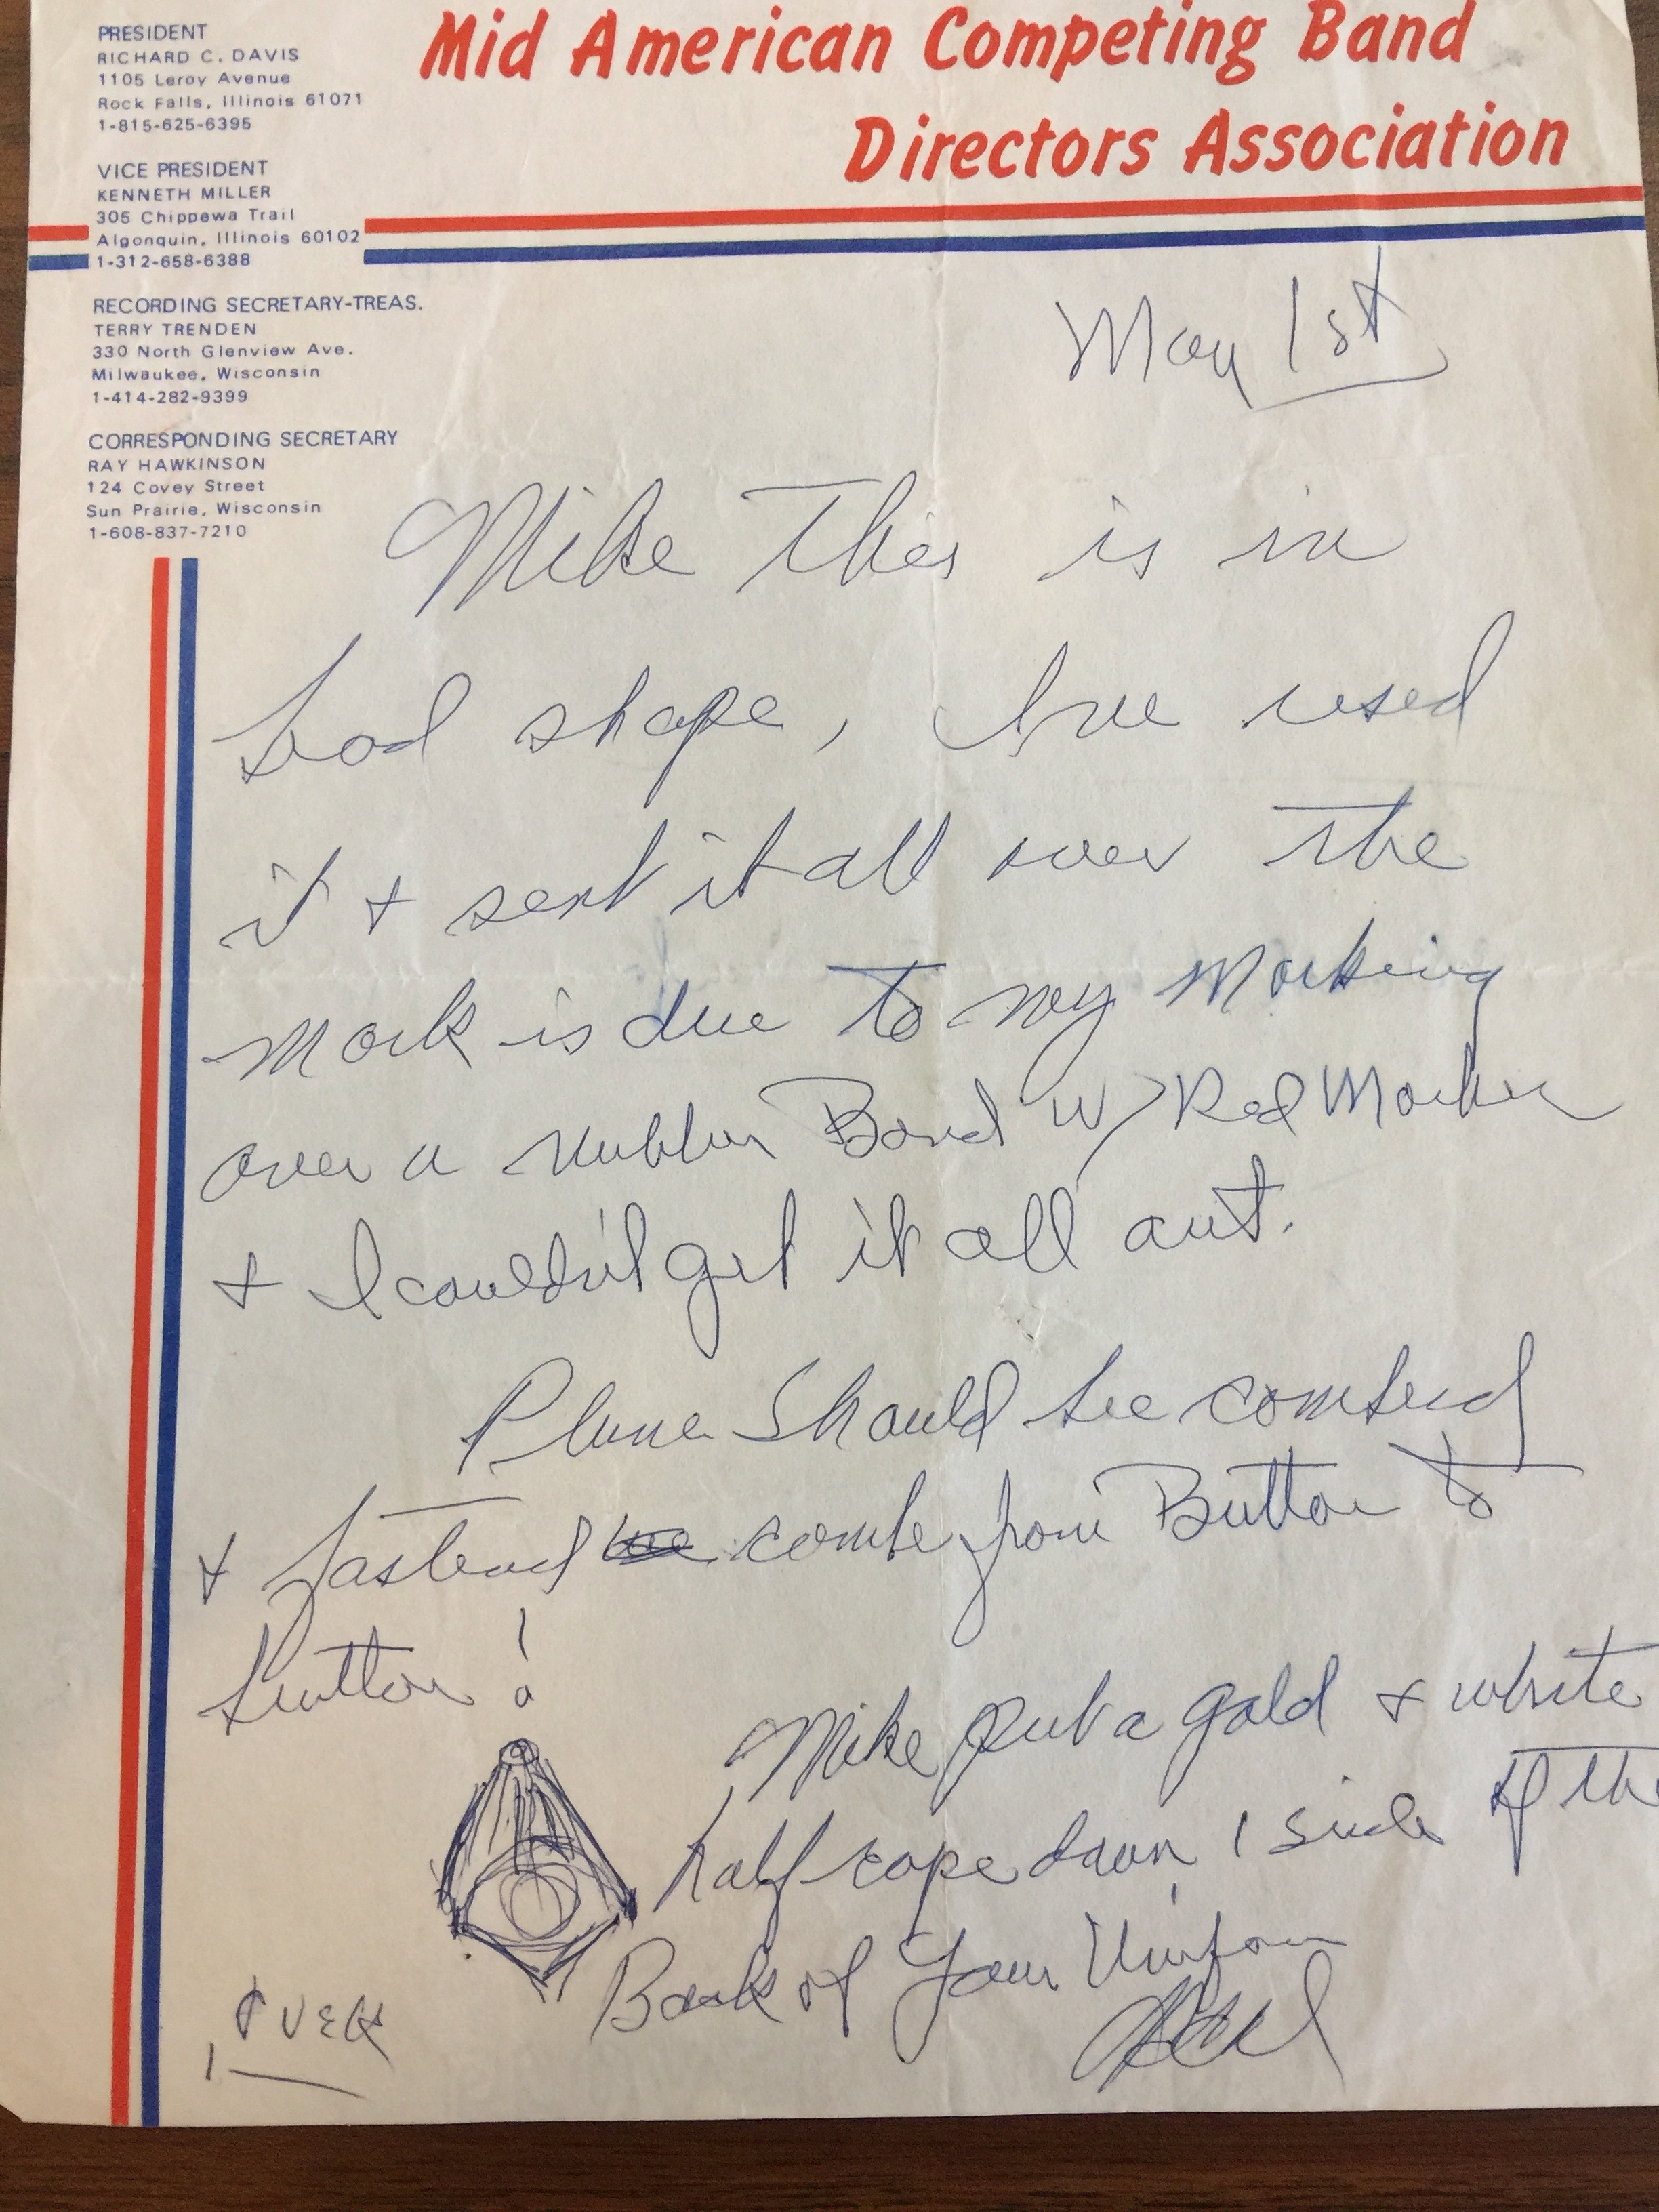 Mid American Competing Band
Directors Association
PRESIDENT
RICHARD C. DAVIS
1105 Leroy Avenue
Rock Falls, Illinois 61071
1-815-625-6395
VICE PRESIDENT
KENNETH MILLER
305 Chippewa Trail
Algonquin, Illinois 60102
1-312-658-6388
RECORDING SECRETARY-TREAS.
TERRY TRENDEN
330 North Glenview Ave.
Milwaukee, Wisconsin
1-414-282-9399
CORRESPONDING SECRETARY
RAY HAWKINSON
124 Covey Street
Sun Prairie, Wisconsin
1-608-837-7210
May 1st
Mike This is in
bad shape, I've used
it + sent it all over the
mark is due to my marking
over a rubber Band w/ Red Marker
+ I couldn't get it all out.
Plume should be combed
+ fastened combe from Button to
button!
Mike put a gold + white
half cape down 1 side of the
Back of your Uniform
OVER